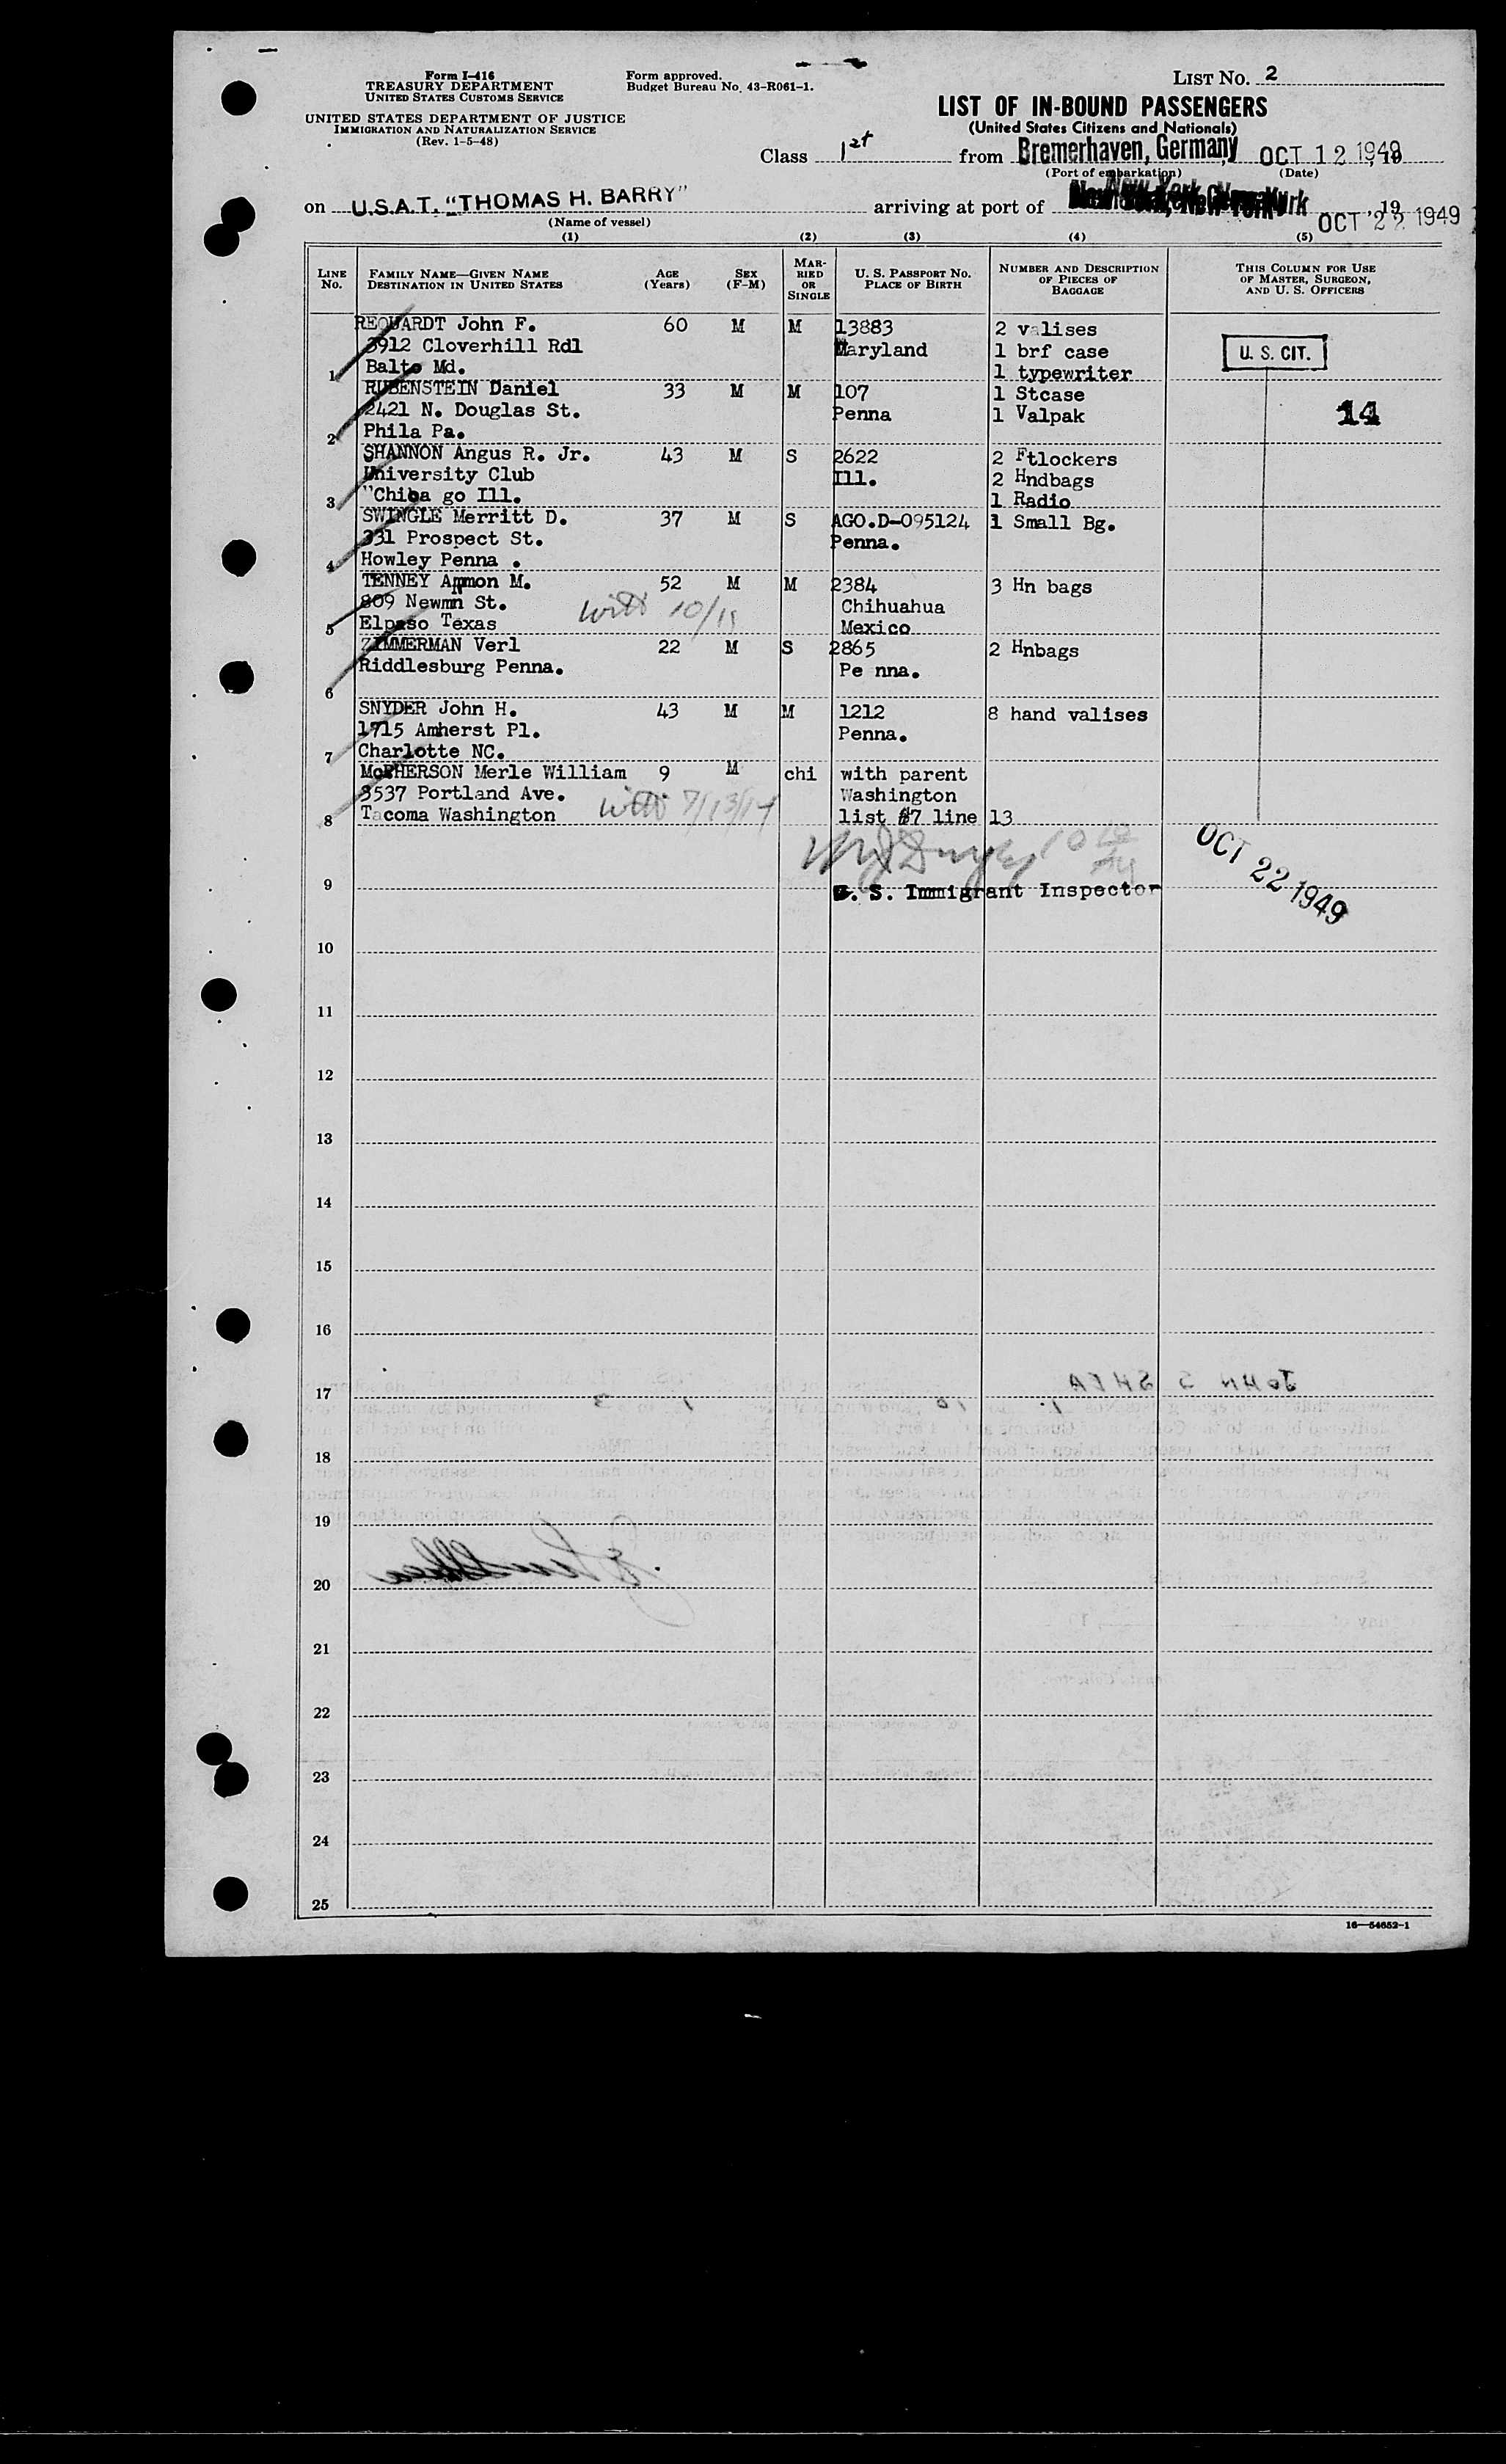 Form I-416
TREASURY DEPARTMENT
UNITED STATES CUSTOMS SERVICE
UNITED STATES DEPARTMENT OF JUSTICE
IMMIGRATION AND NATURALIZATION SERVICE
(Rev. 1-5-48)
Form approved.
Budget Bureau No. 43-R061-1.
LIST No. 2
LIST OF IN-BOUND PASSENGERS
(United States Citizens and Nationals)
Class 1st from Bremerhaven, Germany, OCT 12 1949, 19
(Port of embarkation) (Date)
on U.S.A.T. "THOMAS H. BARRY" arriving at port of New York, OCT 22 1949, 19
(Name of vessel)
(1) (2) (3) (4) (5)
LINE No. FAMILY NAME—GIVEN NAME DESTINATION IN UNITED STATES AGE (Years) SEX (F-M) MARRIED OR SINGLE U. S. PASSPORT No. PLACE OF BIRTH NUMBER AND DESCRIPTION OF PIECES OF BAGGAGE THIS COLUMN FOR USE OF MASTER, SURGEON, AND U. S. OFFICERS
REQUARDT John F. 60 M M 13883 2 valises
3912 Cloverhill Rdl Maryland 1 brf case U. S. CIT.
1 Balto Md. 1 typewriter
RUBENSTEIN Daniel 33 M M 107 1 Stcase
2421 N. Douglas St. Penna 1 Valpak 14
2 Phila Pa.
SHANNON Angus R. Jr. 43 M S 2622 2 Ftlockers
University Club Ill. 2 Hndbags
3 "Chiba go Ill. 1 Radio
SWINGLE Merritt D. 37 M S AGO.D-095124 1 Small Bg.
331 Prospect St. Penna.
4 Howley Penna .
TENNEY Ammon M. 52 M M 2384 3 Hn bags
809 Newmn St. Chihuahua
5 Elpaso Texas with 10/11 Mexico
ZIMMERMAN Verl 22 M S 2865 2 Hnbags
Riddlesburg Penna. Pe nna.
6
SNYDER John H. 43 M M 1212 8 hand valises
1715 Amherst Pl. Penna.
7 Charlotte NC.
McPHERSON Merle William 9 M chi with parent
3537 Portland Ave. Washington
8 Tacoma Washington with 7/13/14 list #7 line 13
OCT 22 1949
9 U. S. Immigrant Inspector
10
11
12
13
14
15
16
JOHN S SHEA
17
18
19
20
21
22
23
24
25
16—54652-1